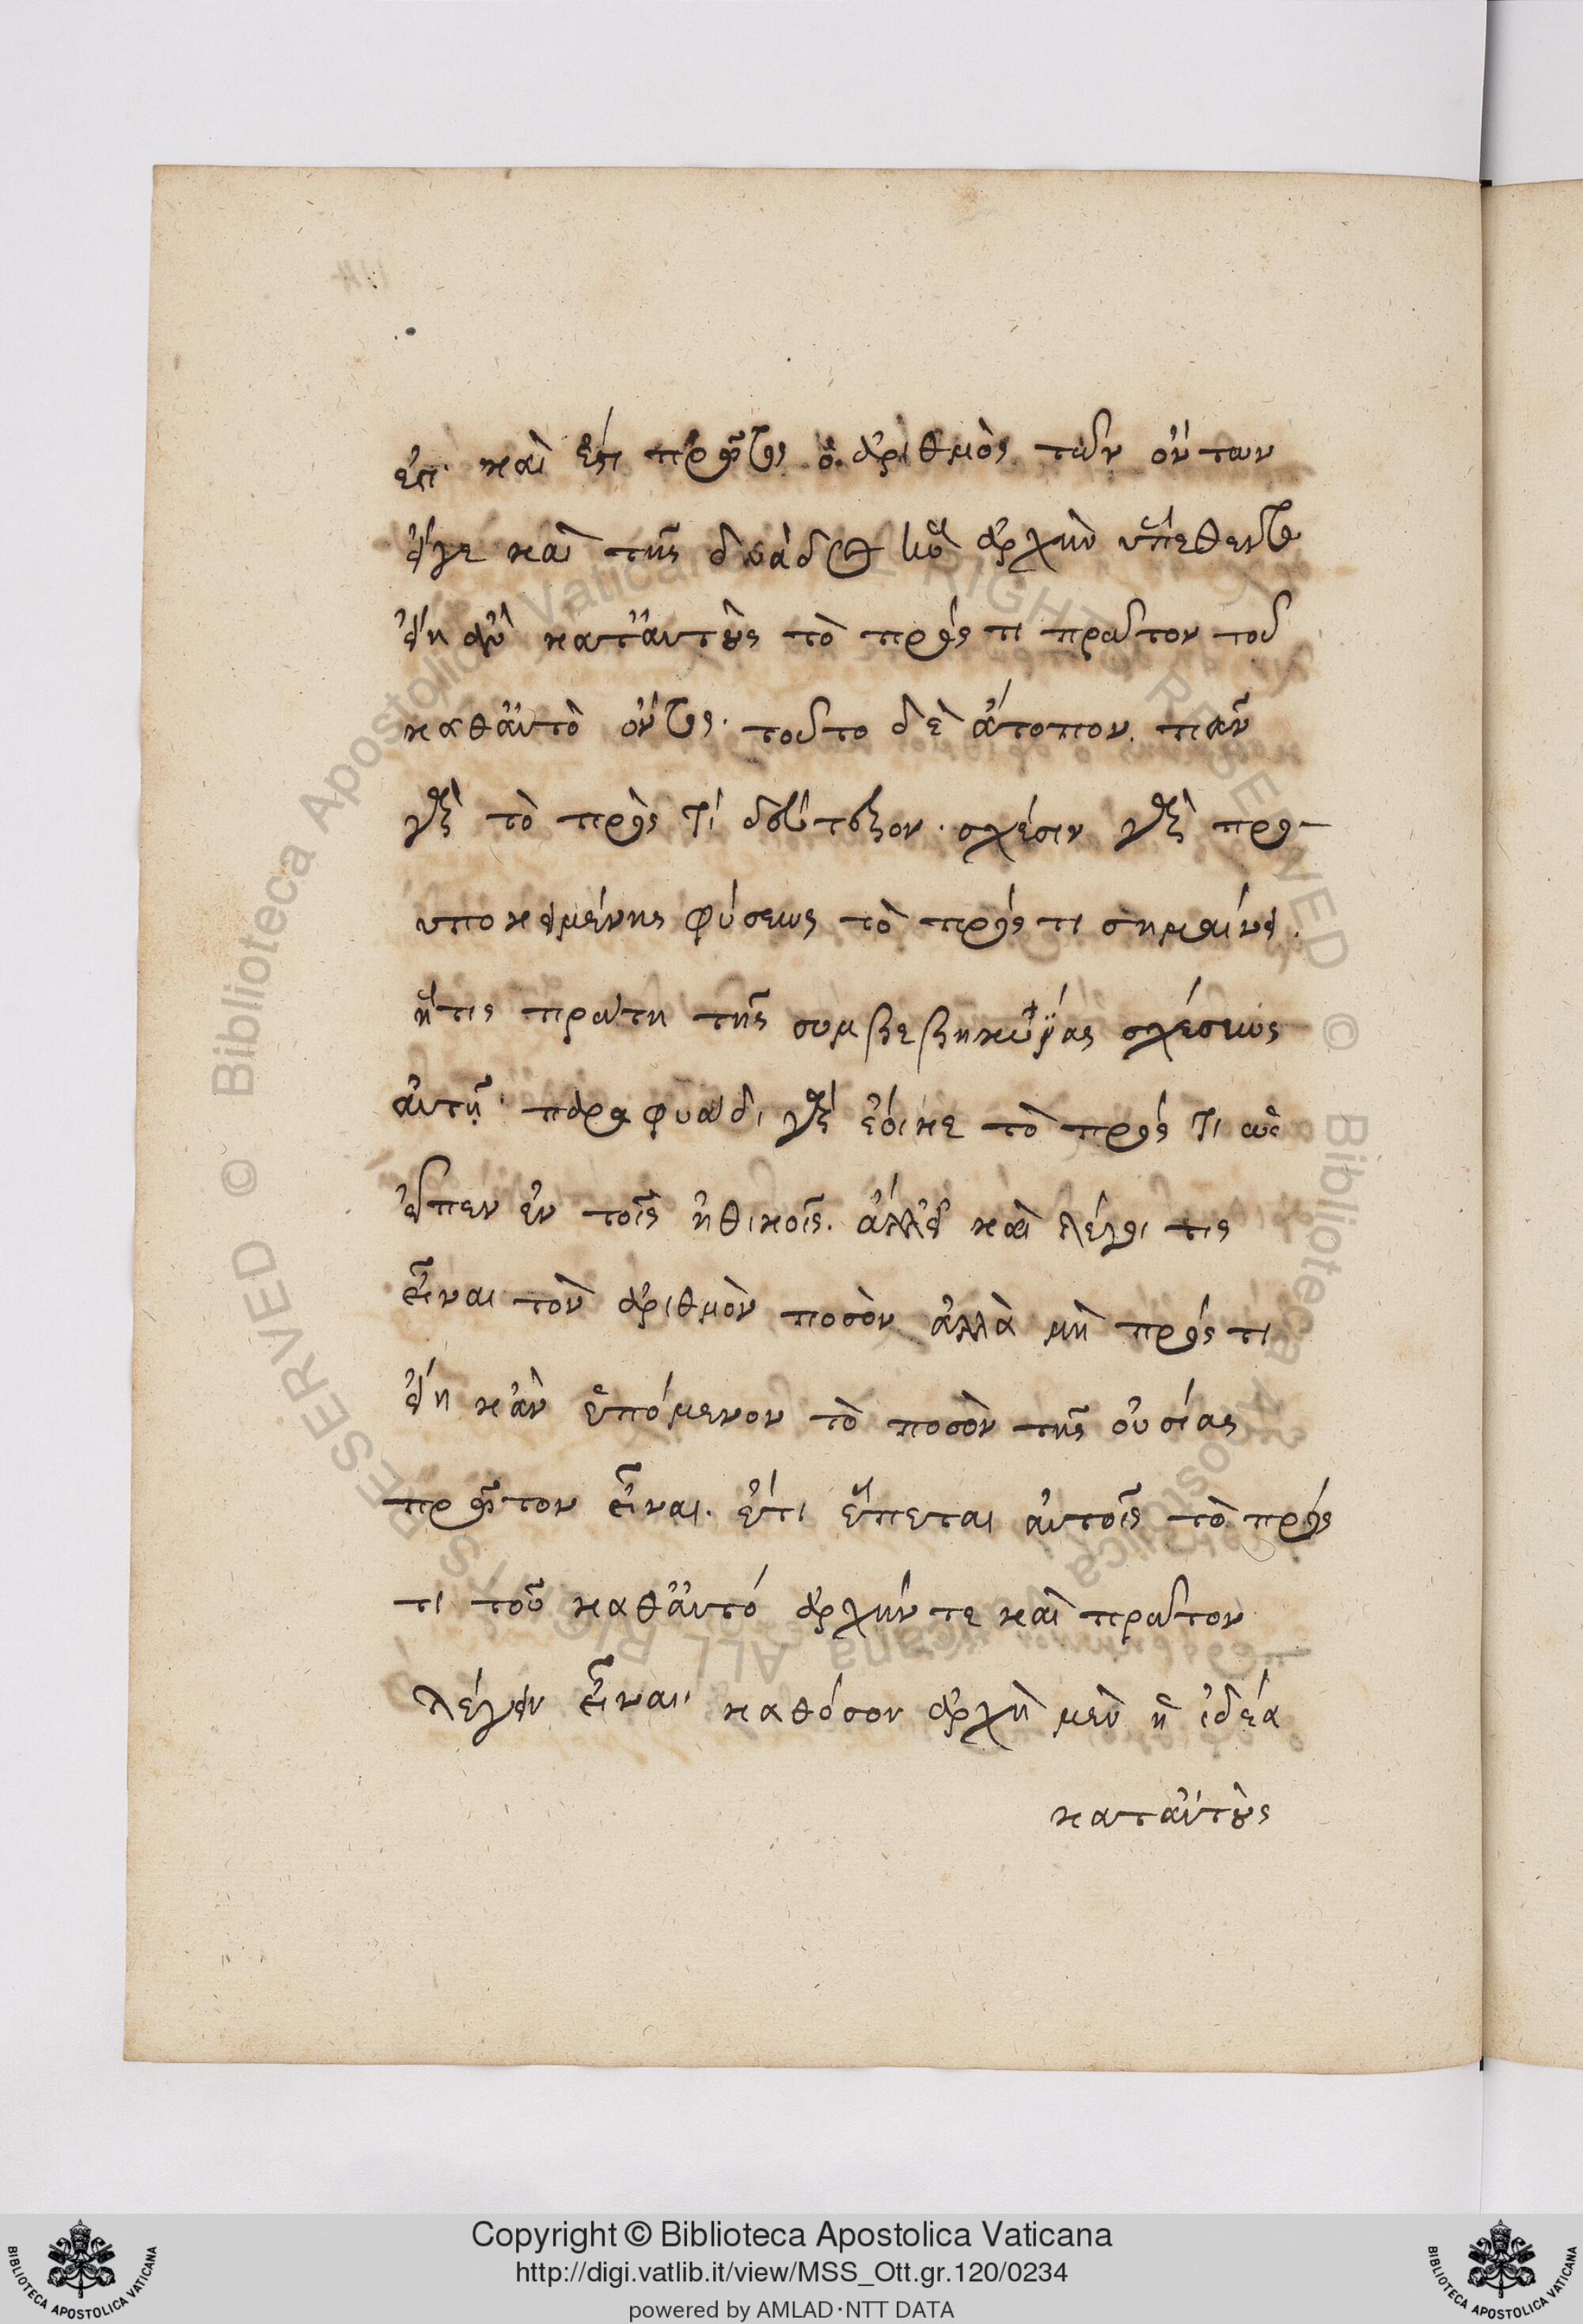 ἔτι καὶ ἔτι πρῶτος ὁ ἀριθμὸς τῶν ὄντων
εἴγε καὶ τῆς δυάδος ἀρχὴν ὑπέθεντο
εἴη ἂν κατ' αὐτοὺς τὸ πρός τι πρῶτον τοῦ
καθ' αὑτὸ ὄντος. τοῦτο δὲ ἄτοπον. πᾶν
γὰρ τὸ πρὸς τί δεύτερον. σχέσιν γὰρ προ-
υποκειμένης φύσεως τὸ πρός τι σημαίνει.
ἥτις πρώτη τῆς συμβεβηκυίας σχέσεως
αὐτῇ. παραφυάδι γὰρ ἔοικε τὸ πρός τι ὡς
εἶπεν ἐν τοῖς ἠθικοῖς. ἀλλ' εἰ καὶ λέγοι τις
εἶναι τὸν ἀριθμὸν ποσὸν ἀλλὰ μὴ πρός τι
εἴη κἂν ἑπόμενον τὸ ποσὸν τῆς οὐσίας
πρῶτον εἶναι. ἔτι ἕπεται αὐτοῖς τὸ πρός
τι τοῦ καθ' αὑτό ἀρχήν τε καὶ πρῶτον
λέγειν εἶναι, καθόσον ἀρχὴ μὲν ἡ ἰδέα
κατ' αὐτοὺς
Copyright © Biblioteca Apostolica Vaticana
http://digi.vatlib.it/view/MSS_Ott.gr.120/0234
powered by AMLAD·NTT DATA